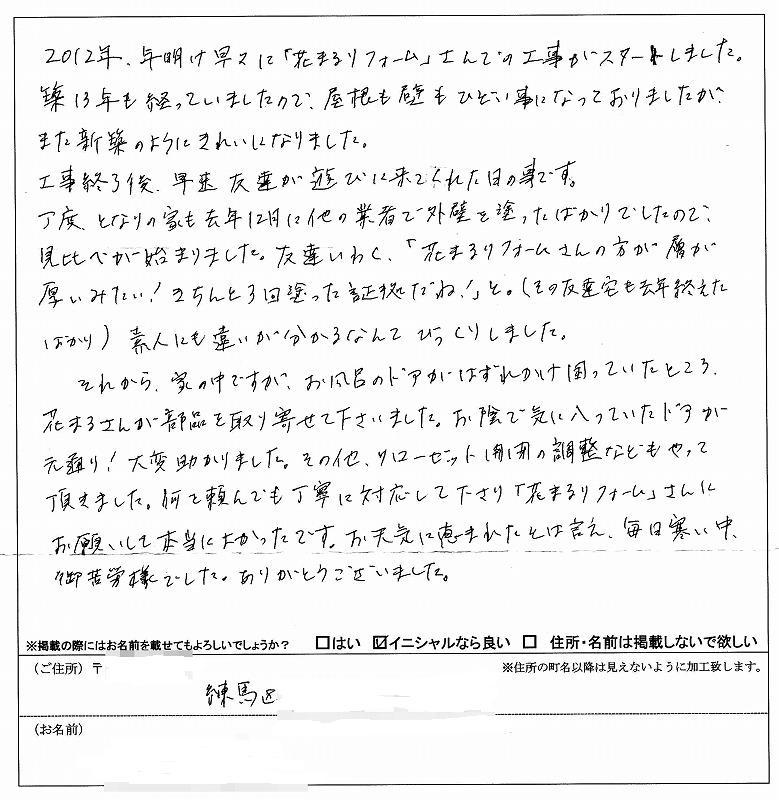 2012年、年明け早々に「花まるリフォーム」さんでの工事がスタートしました。
築13年も経っていましたので、屋根も壁もひどい事になっておりましたが、
また新築のようにきれいになりました。
工事終了後、早速友達が遊びに来てくれた日の事です。
丁度、となりの家も去年12月に他の業者で外壁を塗ったばかりでしたので、
見比べが始まりました。友達いわく、「花まるリフォームさんの方が層が
厚いみたい！きちんと3回塗った証拠だね！」と。(その友達宅も去年終えた
ばかり) 素人にも違いが分かるなんてびっくりしました。
それから、家の中ですが、お風呂のドアがはずれかけ困っていたところ、
花まるさんが部品を取り寄せて下さいました。お陰で気に入っていたドアが
元通り！大変助かりました。その他、クローゼット開閉の調整などもやって
頂きました。何を頼んでも丁寧に対応して下さり「花まるリフォーム」さんに
お願いして本当によかったです。お天気に恵まれたとは言え、毎日寒い中、
御苦労様でした。ありがとうございました。
※掲載の際にはお名前を載せてもよろしいでしょうか？ □はい ☑イニシャルなら良い □ 住所・名前は掲載しないで欲しい
（ご住所）〒 ※住所の町名以降は見えないように加工致します。
練馬区
（お名前）